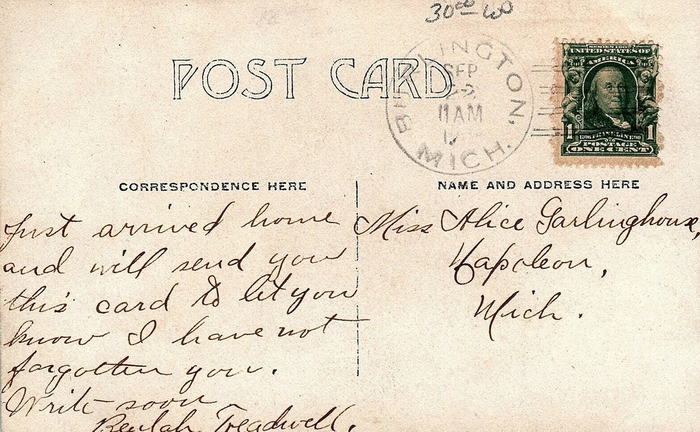 30 00 W
POST CARD
BRILLINGTON, MICH.
SEP
11 AM
SERIES 1902
UNITED STATES OF
AMERICA
1 FRANKLIN 1
POSTAGE
ONE CENT
CORRESPONDENCE HERE
NAME AND ADDRESS HERE
Just arrived home
and will send you
this card to let you
know I have not
forgotten you.
Write soon
Beulah Treadwell.
Miss Alice Garlinghouse,
Napoleon,
Mich.